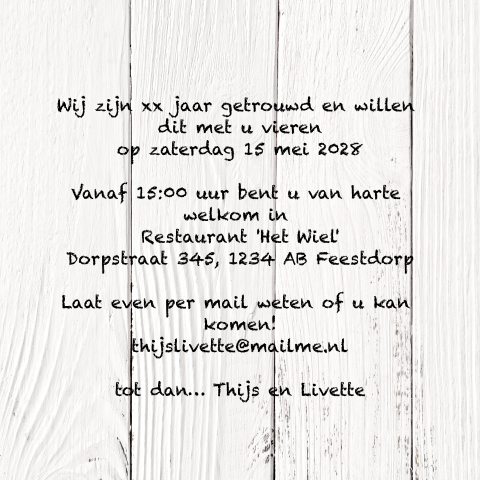 Wij zijn xx jaar getrouwd en willen
dit met u vieren
op zaterdag 15 mei 2028
Vanaf 15:00 uur bent u van harte
welkom in
Restaurant 'Het Wiel'
Dorpstraat 345, 1234 AB Feestdorp
Laat even per mail weten of u kan
komen!
thijslivette@mailme.nl
tot dan... Thijs en Livette